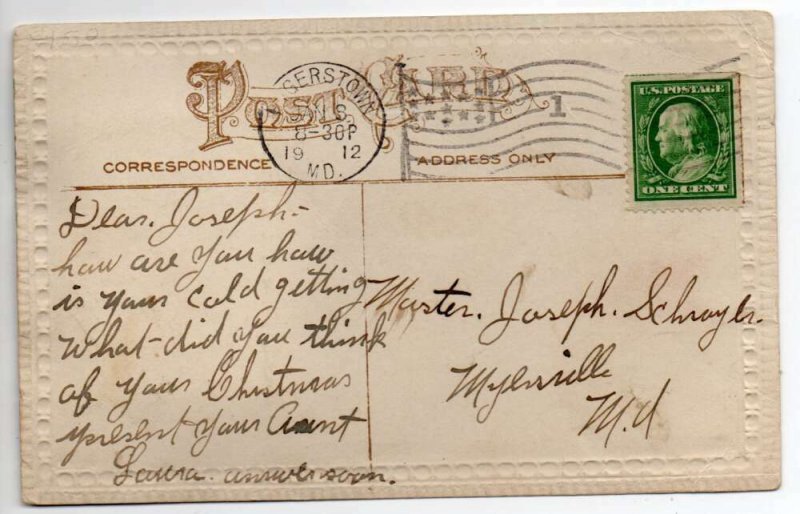 POST CARD
GERSTOWN
JAN 8
8-30P
1912
MD.
1
U.S. POSTAGE
ONE CENT
CORRESPONDENCE
ADDRESS ONLY
Dear Joseph-
how are you how
is your cold getting
What did you think
of your Chistmas
present your Aunt
Laura. answer soon.
Master. Joseph. Schroyer.
Myersville
Md